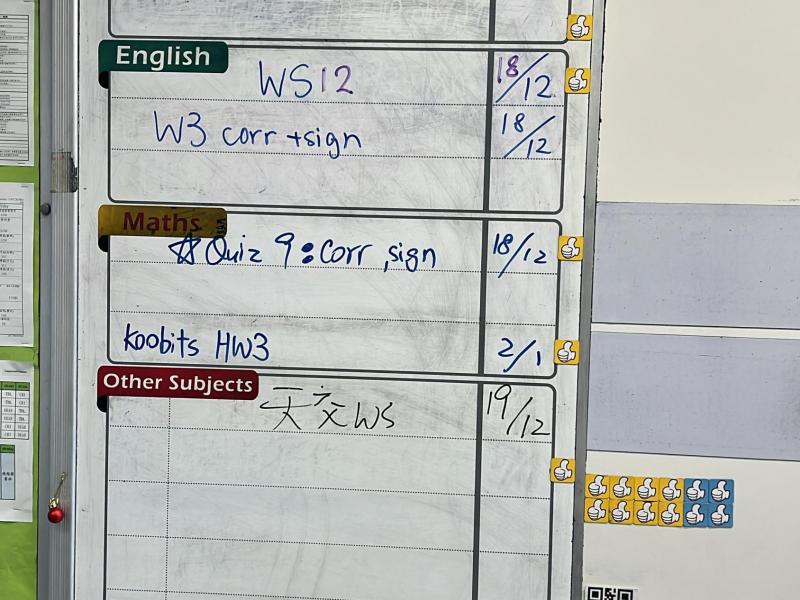 English
WS12 18/12
W3 corr +sign 18/12
Maths
☆ Quiz 9: Corr, sign 18/12
Koobits HW3 2/1
Other Subjects
天文 WS 19/12